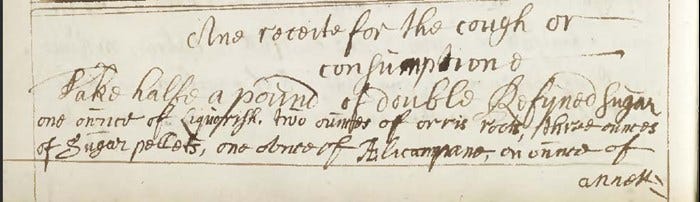 One receite for the cough or
consumptione
Take halfe a pound of double Refyned Sugar
one ounce of Liquorish. two ounces of orris roots, three ounces
of Sugar pellets, one ounce of Alicampane, on ounce of
annett